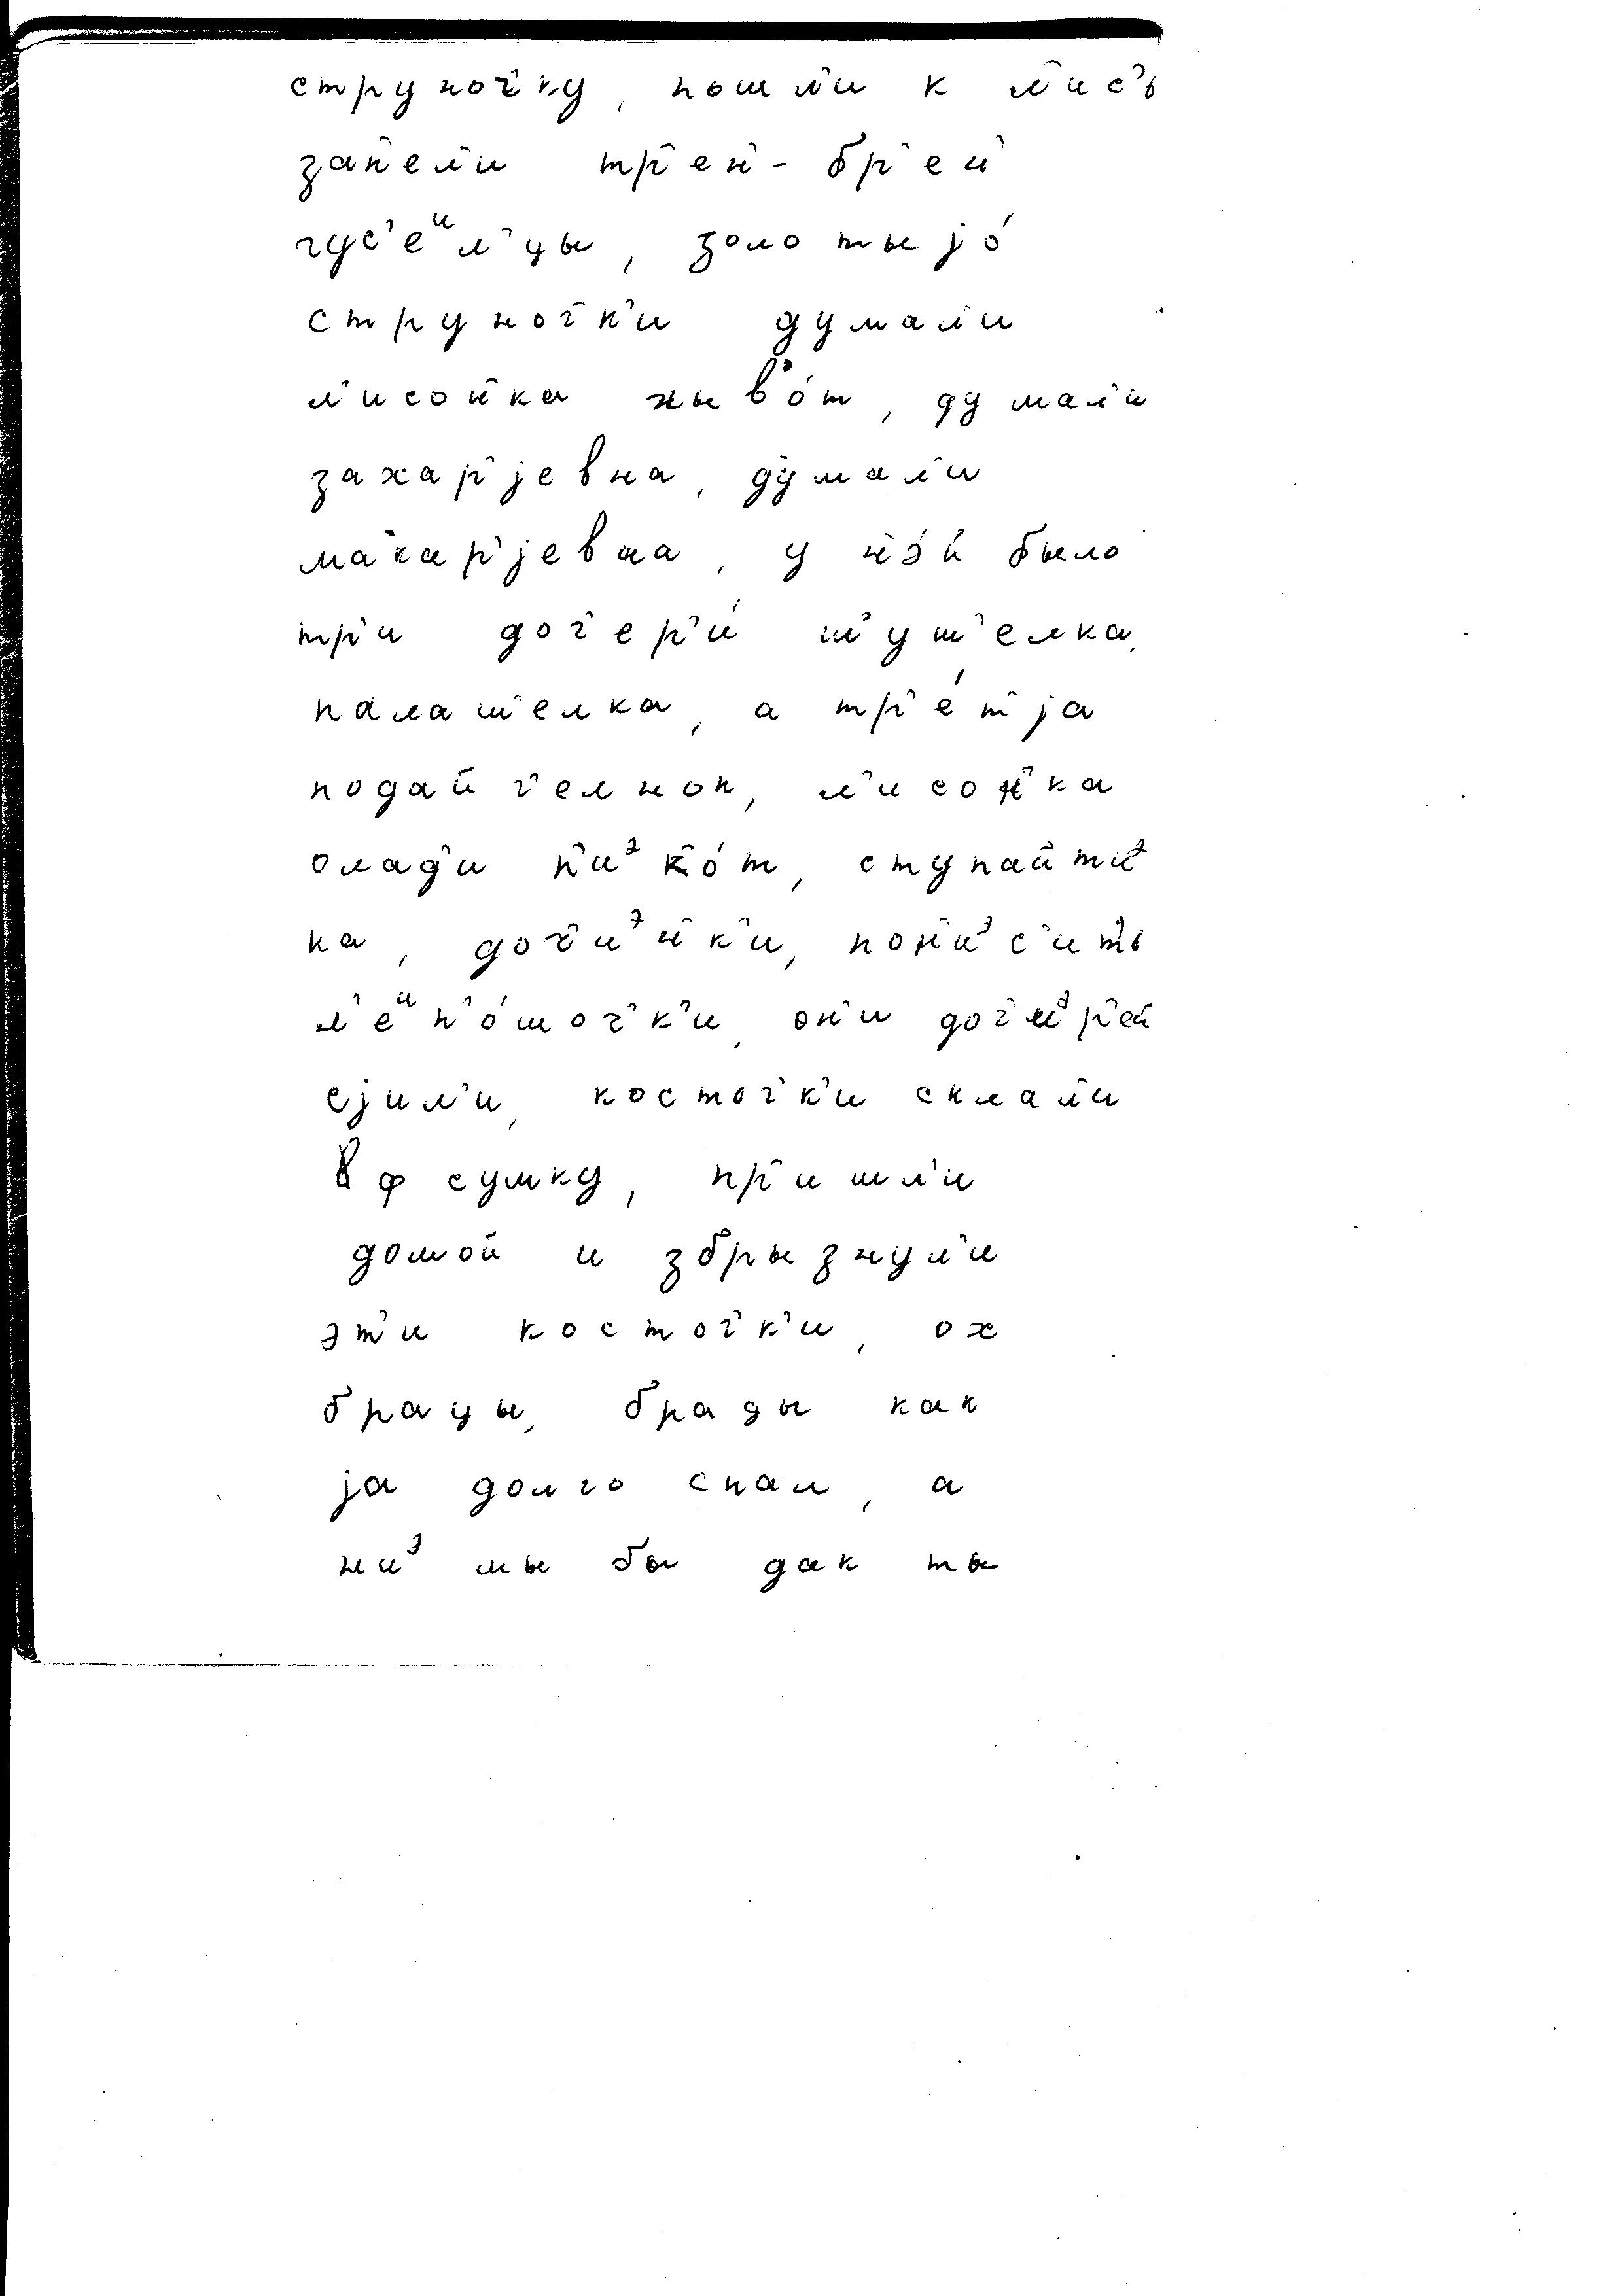 струноч'ку, пошл'и к л'ис'ь
зап'ел'и тр'ен'-бр'ен'
гус'еᵘл'цы, золотыjо́
струноч'к'и думал'и
л'исон'ка жыв'о́т, думал'и
захар'jевна, думал'и
макар'jевна, у н'э́й было
тр'и доч'ер'и́ ш'уш'елка,
палаш'елка, а тр'е́т'jа
подай ч'елнок, л'исон'ка
олад'и п'иᵊк'о́т, ступайт'иᵊ
ка, доч'иᵊн'к'и, пон'иᵊс'ит'ь
л'еᵘп'о́шоч'к'и, он'и доч'иᵊр'ей
сjил'и, косточ'к'и склал'и
вф сумку, пр'ишл'и
домой и збрызнул'и
эт'и косточ'к'и, ох
брацы, брацы как
jа долго спал, а
ниᵊ мы бы дак ты